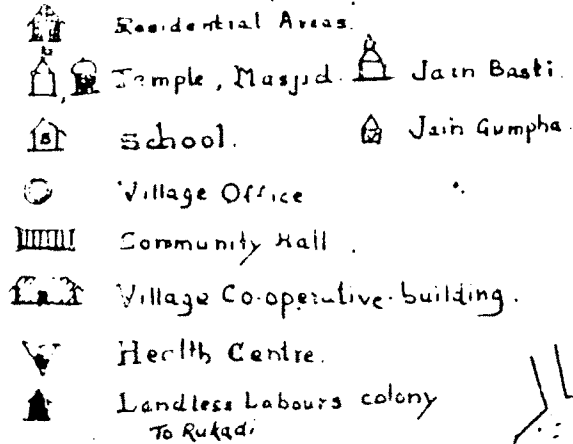 Residential Areas.
Temple, Masjid. Jain Basti.
S School. Jain Gumpha.
Village Office
Community Hall.
Village Co-operative building.
Health Centre.
Landless Labours colony
To Rukadi